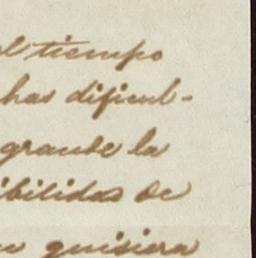 el tiempo
has dificul-
grande la
ibilidas de
quisiera